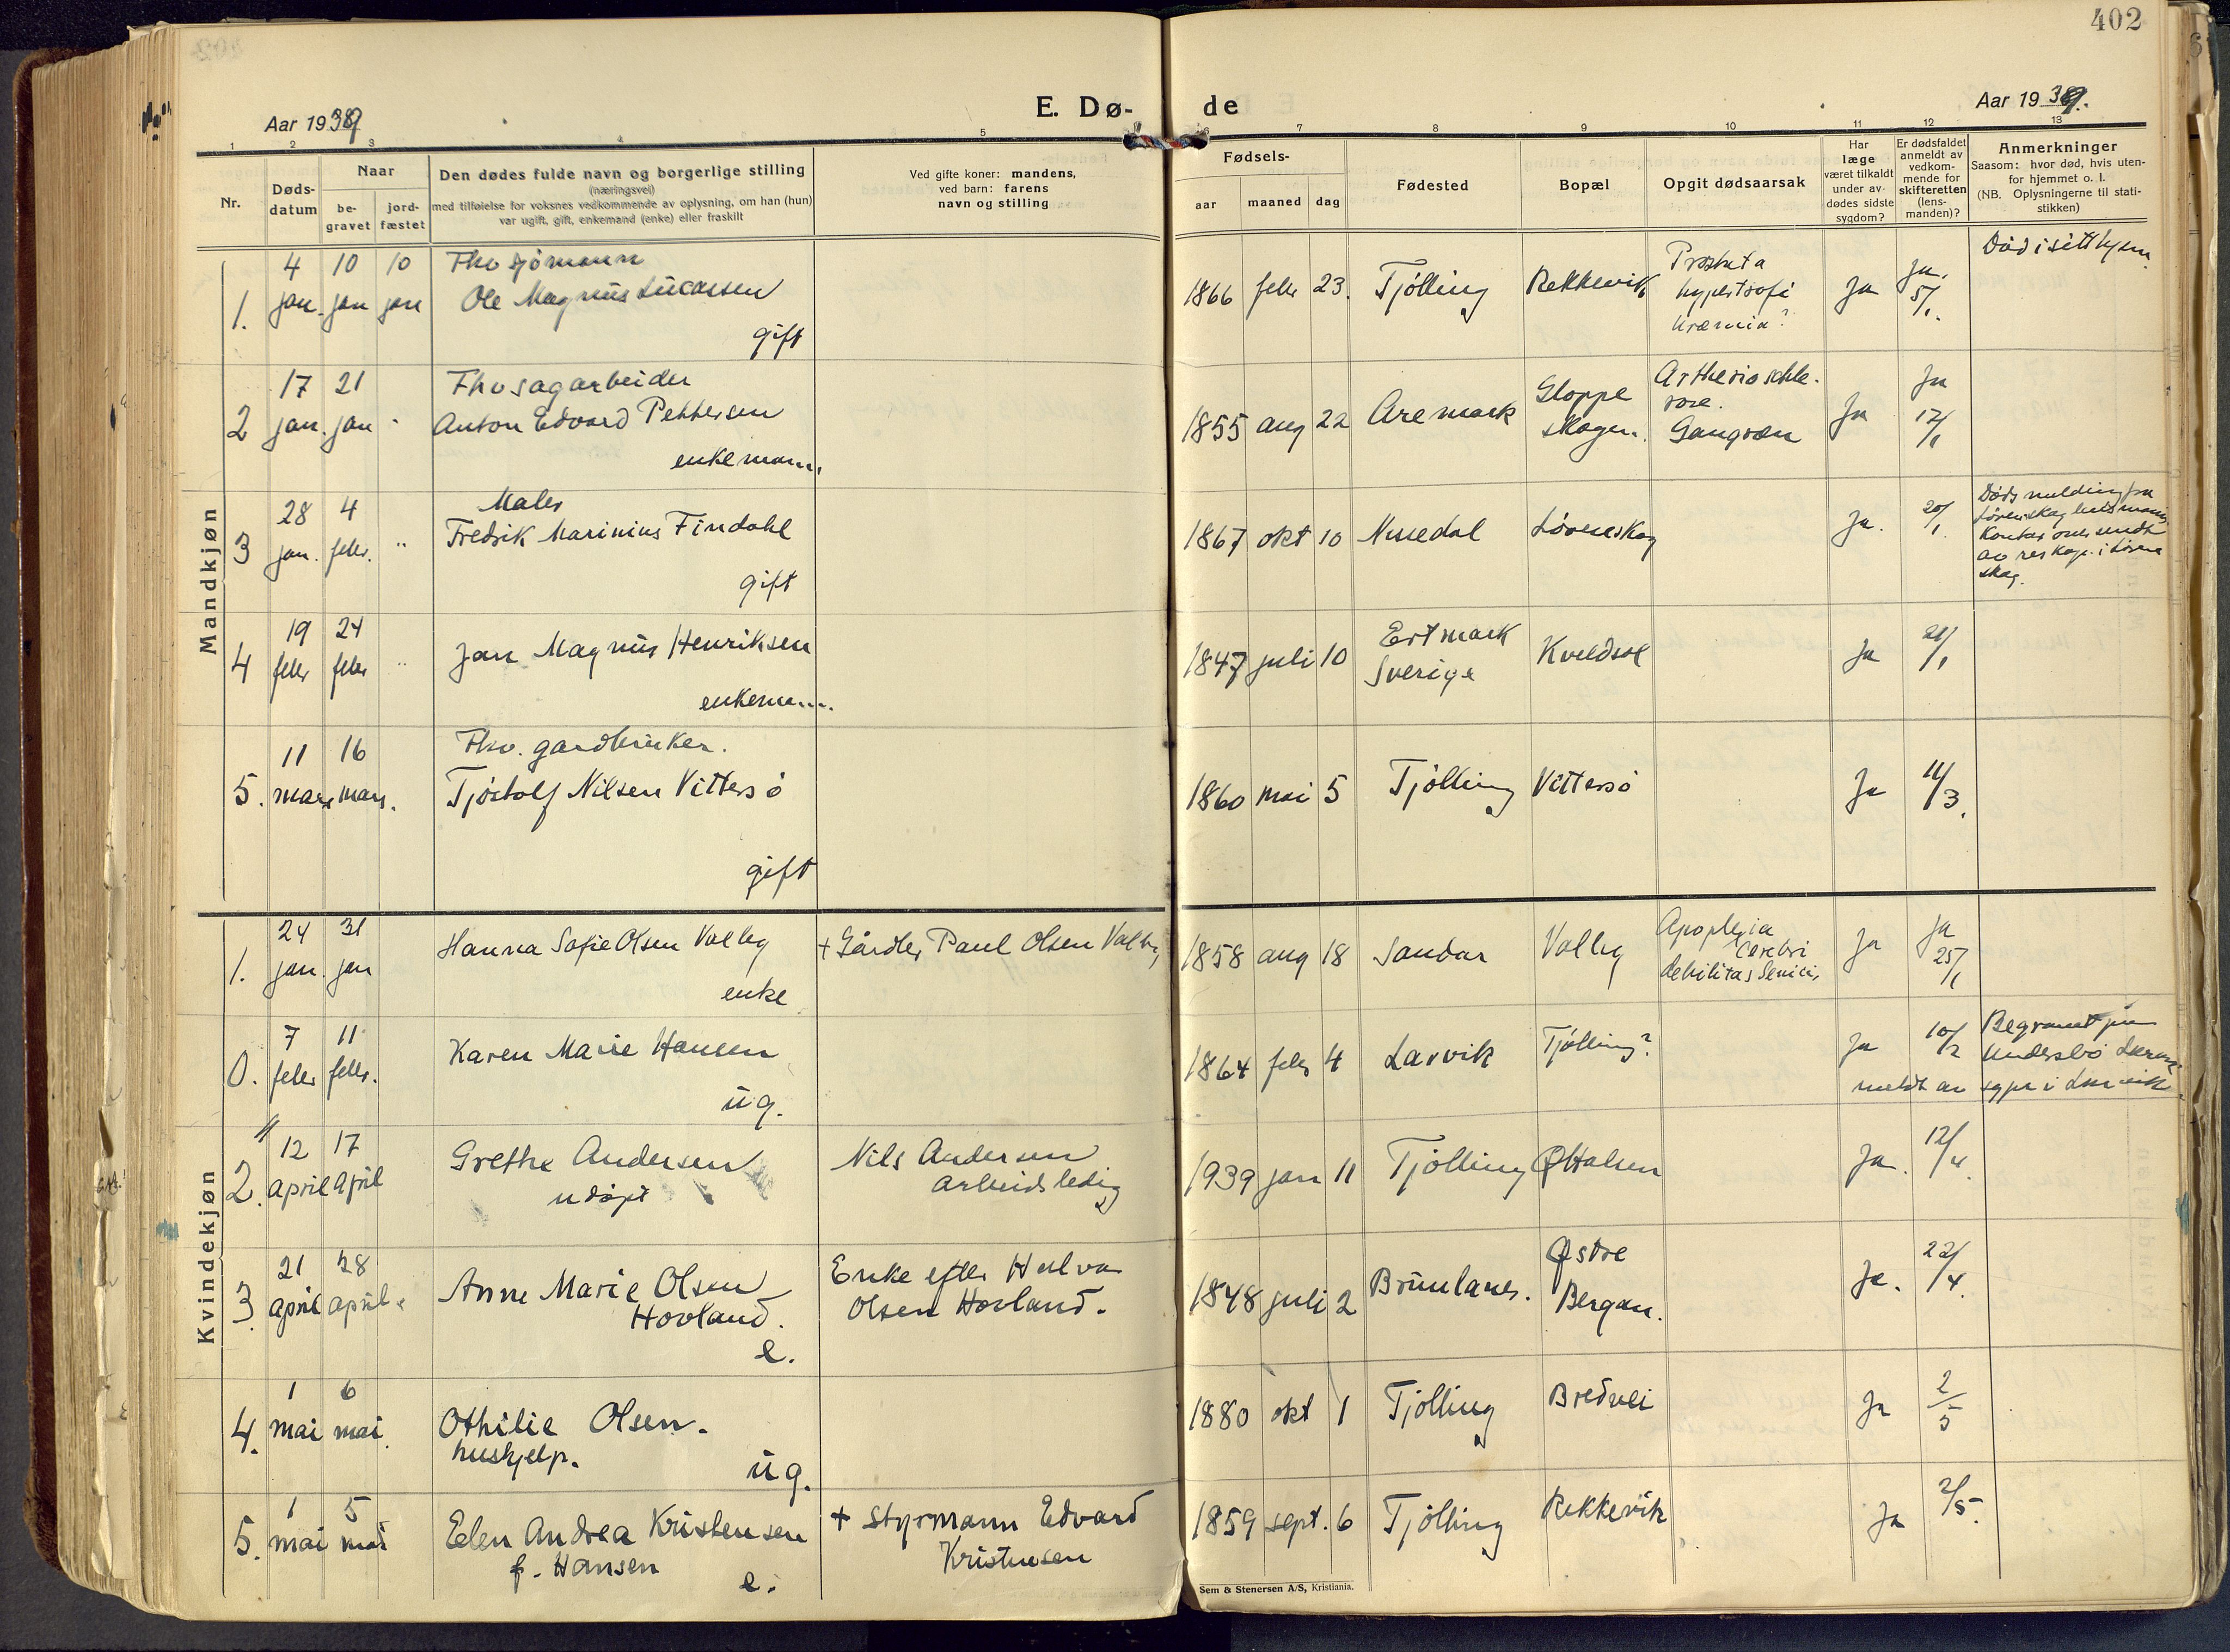 402
Aar 1939
E. Dø-
de
Aar 1939.
1 2 3 4 5 6 7 8 9 10 11 12 13
Nr.
Døds-
datum
Naar
be-
gravet
jord-
fæstet
Den dødes fulde navn og borgerlige stilling
(næringsvei)
med tilføielse for voksnes vedkommende av oplysning, om han (hun)
var ugift, gift, enkemand (enke) eller fraskilt
Ved gifte koner: mandens,
ved barn: farens
navn og stilling
Fødsels-
aar maaned dag
Fødested
Bopæl
Opgit dødsaarsak
Har
læge
været tilkaldt
under av-
dødes sidste
sygdom?
Er dødsfaldet
anmeldt av
vedkom-
mende for
skifteretten
(lens-
manden)?
Anmerkninger
Saasom: hvor død, hvis uten-
for hjemmet o. l.
(NB. Oplysningerne til stati-
stikken)
Mandkjøn
1. 4 jan. 10 jan 10 jan
Fhv sjömann
Ole Magnus Lucassen
gift
1866 febr 23. Tjölling Rekkevik
Prostata
hypertrofi
Uræmia?
Ja
Ja.
5/1.
Död i sitt hjem
2 17 jan. 21 jan "
Fhv sagarbeider
Anton Edvard Pettersen
enkemann.
1855 aug 22 Aremark
Gloppe
skogen.
Artherioschle-
rose.
Gangræn
Ja
Ja
17/1
3 28 jan. 4 febr. "
Maler
Fredrik Marinius Findahl
gift
1867 okt 10 Nissedal Lörenskog
Ja.
20/1.
Döds melding fra
Lörenskog lensmans
Kontor oversendt
av res kap. i Lören
skog.
4 19 febr 24 febr "
Jan Magnus Henriksen
enkemann.
1847 juli 10
Ertmark
Sverige
Kveldsol
Ja
21/1
5. 11 mars 16 mars.
Fhv. gardbruker.
Tjöstolf Nilsen Vittersö
gift
1860 mai 5 Tjölling Vittersö
Ja
11/3.
Kvindekjøn
1. 24 jan. 31 jan
Hanna Sofie Olsen Valby
enke
+ Gårdbr Paul Olsen Valby
1858 aug 18 Sandar Valby
Apoplexia
Cerebri
debilitas Senilis
Ja
Ja
25/1
0. 7 febr 11 febr.
Karen Marie Hansen
ug.
1864 febr 4 Larvik Tjölling?
Ja
10/2
Begravet fra
Undersbo Larvik
meldt av sgpr i Larvik.
2. 12 april 17 april
Grethe Andersen
udöpt
Nils Andersen
Arbeidsledig
1939 jan 11 Tjölling Øthalsen
Ja.
12/4.
3. 21 april 28 april
Anne Marie Olsen
Hovland.
e.
Enke efter Halvar
Olsen Hovland.
1848 juli 2 Brunlanes.
Østre
Bergan.
Ja.
22/4.
4. 1 mai 6 mai.
Othilie Olsen.
hushjelp.
ug.
1880 okt 1 Tjölling Bredvei
Ja
2/5
5. 1 mai 5 mai
Eelen Andrea Kristensen
f. Hansen
e.
+ Styrmann Edvard
Kristensen
1859 sept. 6 Tjölling Rekkevik
Ja
2/5.
Sem & Stenersen A/S, Kristiania.